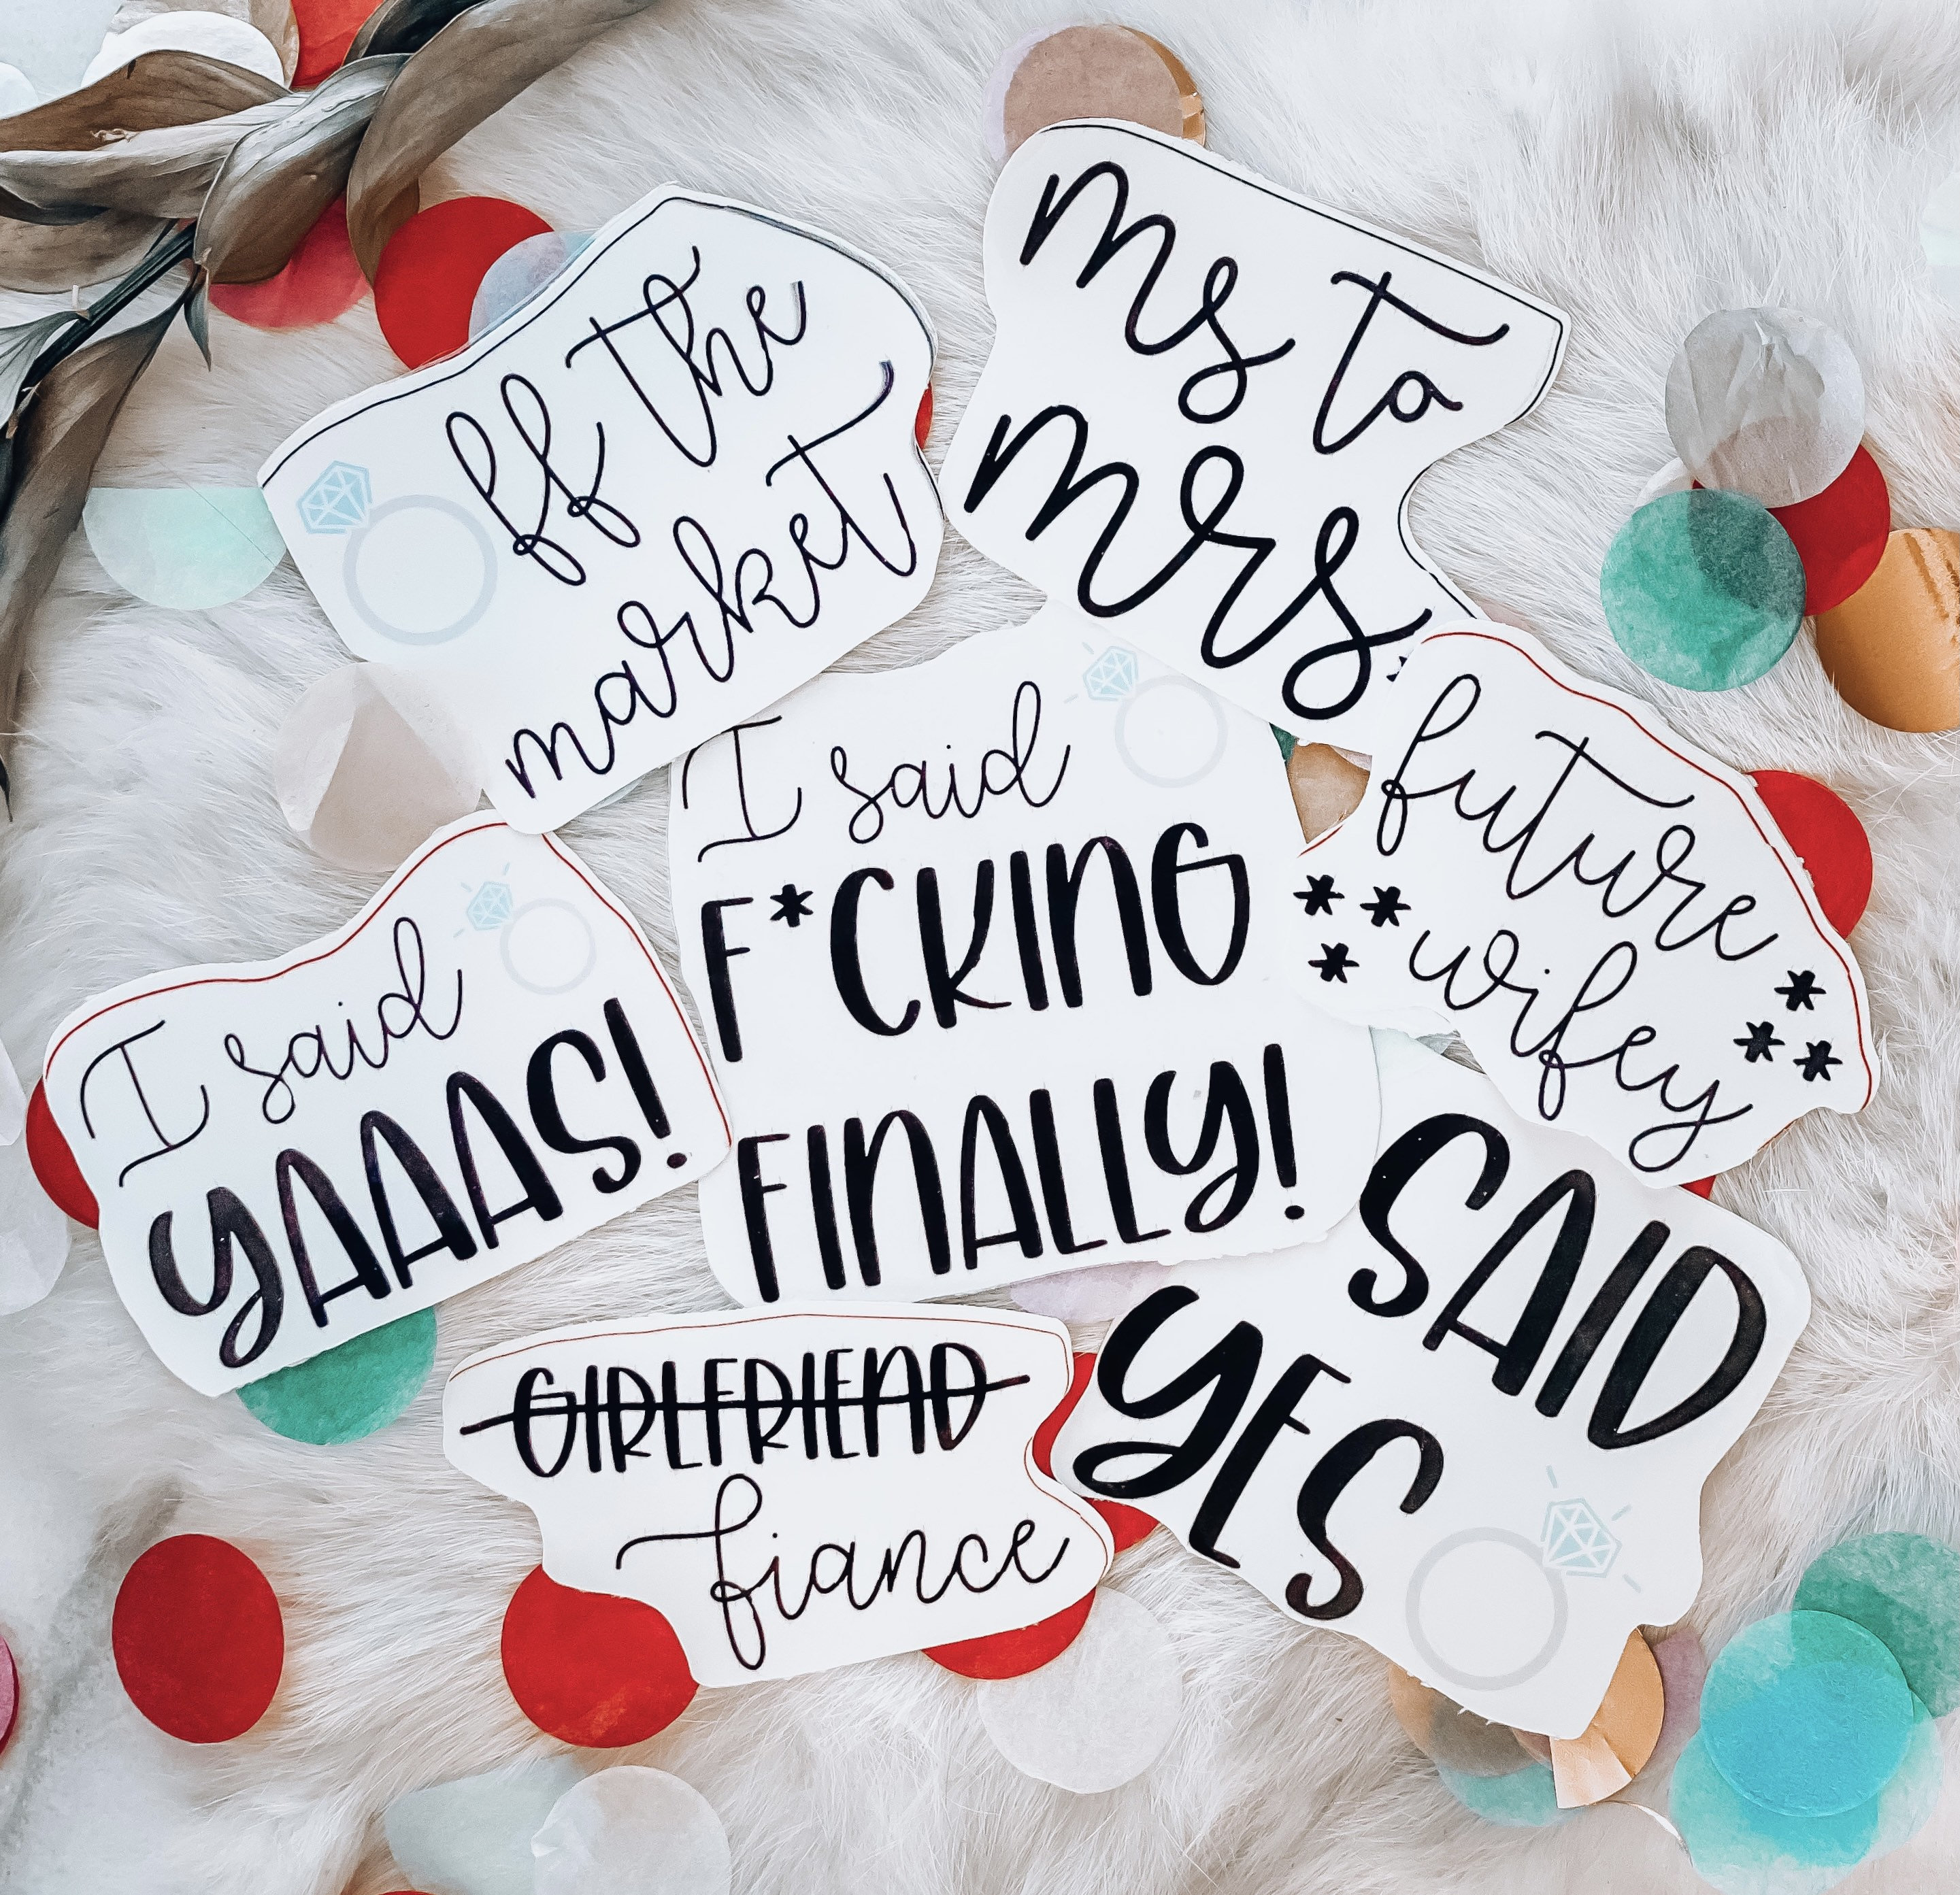 ff the
market
Ms to
Mrs.
I said
F*CKING
FINALLY!
future
wifey
I said
YAAAS!
GIRLFRIEND
fiance
SAID
YES